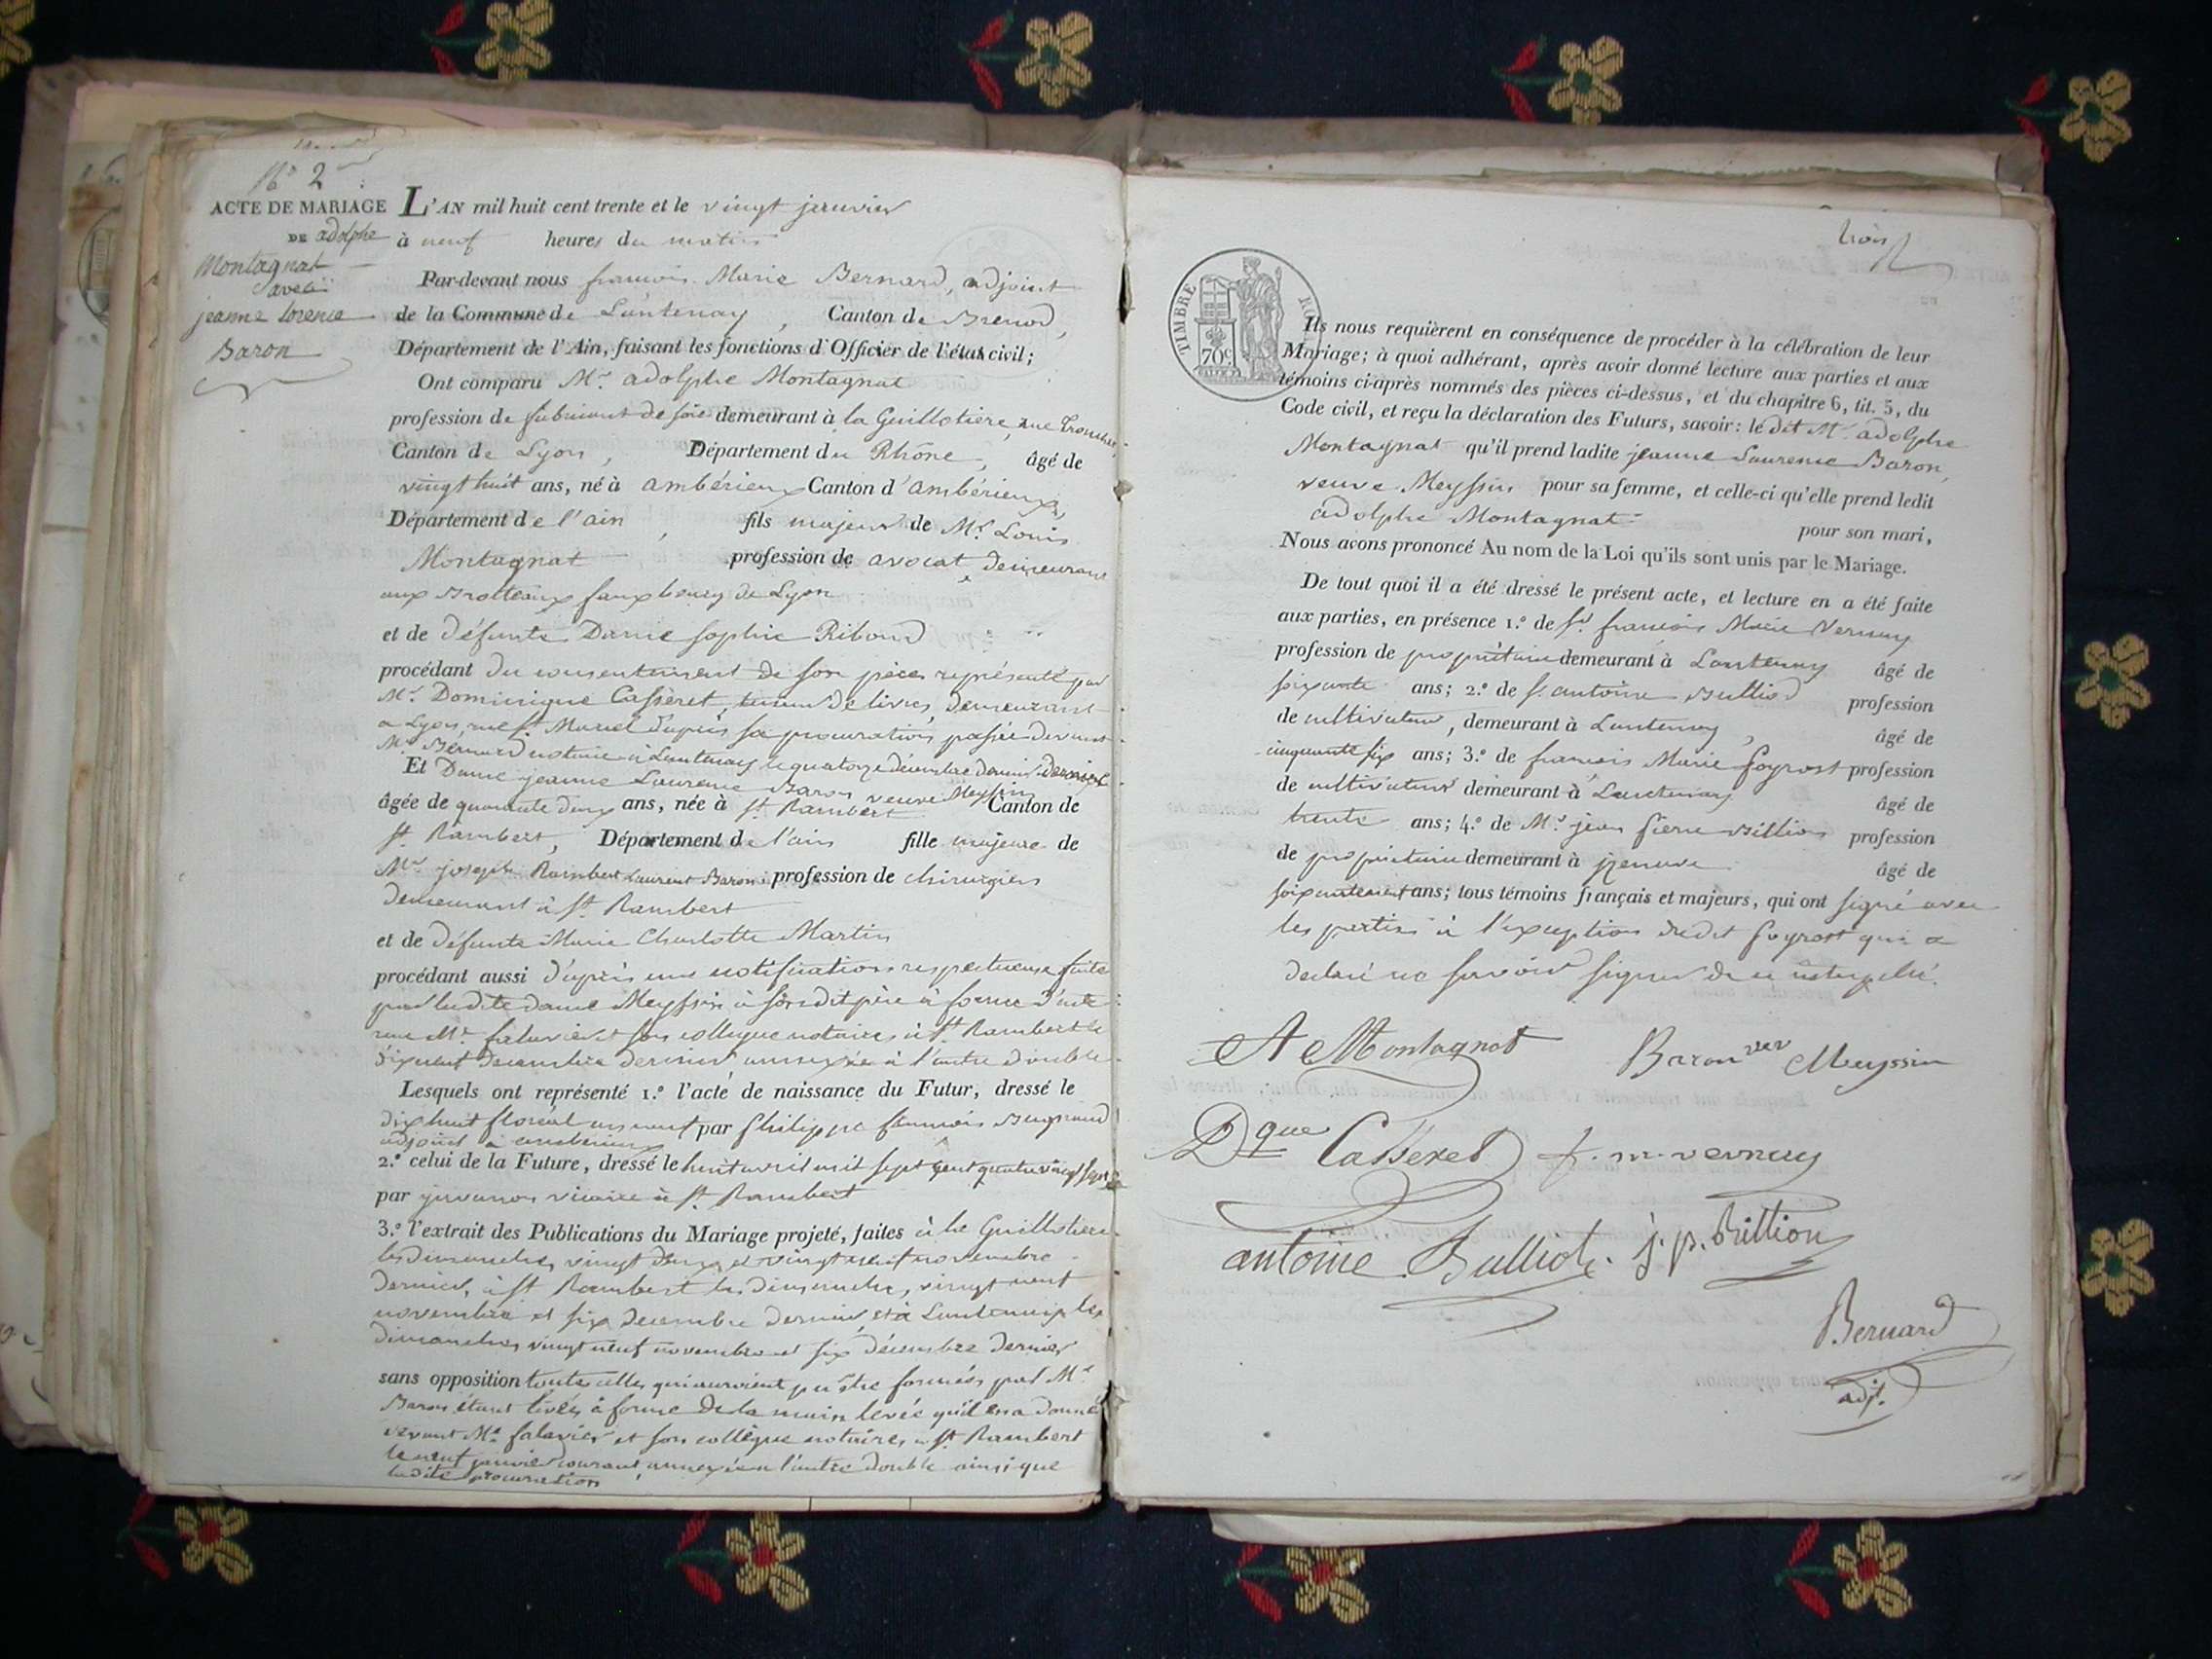 N° 2
ACTE DE MARIAGE
DE adolphe
Montagnat
avec
jeanne Lorence
Baron
L'AN mil huit cent trente et le vingt janvier
à neuf heures du matin
Par-devant nous francois Marie Bernard, adjoint
de la Commune de Lantenay, Canton de Brenod,
Département de l'Ain, faisant les fonctions d'Officier de l'état civil;
Ont comparu Mr. adolphe Montagnat
profession de fabricant de soie demeurant à la Guillotiere, rue
Canton de Lyon, Département du Rhône, âgé de
vingt huit ans, né à ambérieux Canton d'ambérieux,
Département de l'ain, fils majeur de Mr. Louis
Montagnat profession de avocat, demeurant
aux Brotteaux fauxbourg de Lyon
et de défunte Dame sophie Riboud
procédant du consentement de son père, représenté par
Mr. Dominique Casseret, teneur de livres, demeurant
a Lyon, rue St. Marcel d'après sa procuration passée devant
Me. Bernard notaire à Lantenay le quatorze décembre dernier
Et Dame jeanne Laurence Baron veuve Meyssin
âgée de quarante deux ans, née à St. Rambert Canton de
St. Rambert, Département de l'ain fille majeure de
Mr. joseph Rambert Laurent Baron profession de chirurgien
demeurant à St. Rambert
et de défunte Marie Charlotte Martin
procédant aussi d'après une notification respectueuse faite
par ladite dame Meyssin à son dit père à forme d'acte
reçu Me. falavier et son collegue notaires à St. Rambert le
dixneuf decembre dernier annexée à l'autre double
Lesquels ont représenté 1.° l'acte de naissance du Futur, dressé le
dix huit floréal an neuf par philippe francois
adjoint à ambérieux
2.° celui de la Future, dressé le huit avril mil sept cent quatre vingt sept
par vicaire à St. Rambert
3.° l'extrait des Publications du Mariage projeté, faites à la Guillotiere
les dimanches vingt deux et vingt neuf novembre
dernier, à St Rambert les dimanches, vingt neuf
novembre et six decembre dernier, et à Lantenay les
dimanches vingt neuf novembre et six décembre dernier
sans opposition toutes celles qui auroient pu être formées par Mr
Baron étant levées à forme de la main levée qu'il en a donné
devant Me. falavier et son collègue notaires à St. Rambert
le neuf janvier courant, annexée a l'autre double ainsi que
ladite procuration
trois
TIMBRE ROYAL
70c
Ils nous requièrent en conséquence de procéder à la célébration de leur
Mariage; à quoi adhérant, après avoir donné lecture aux parties et aux
témoins ci-après nommés des pièces ci-dessus, et du chapitre 6, tit. 5, du
Code civil, et reçu la déclaration des Futurs, savoir: le dit Mr. adolphe
Montagnat qu'il prend ladite jeanne Laurence Baron,
veuve Meyssin pour sa femme, et celle-ci qu'elle prend ledit
adolphe Montagnat pour son mari,
Nous avons prononcé Au nom de la Loi qu'ils sont unis par le Mariage.
De tout quoi il a été dressé le présent acte, et lecture en a été faite
aux parties, en présence 1.° de Sr. francois Marie Vernay
profession de propriétaire demeurant à Lantenay âgé de
soixante ans; 2.° de Sr. antoine Bulliod profession
de cultivateur, demeurant à Lantenay, âgé de
cinquante six ans; 3.° de francois Marie poyrost profession
de cultivateur demeurant à Lantenay âgé de
trente ans; 4.° de Mr. jean pierre Billion profession
de propriétaire demeurant à jzenave âgé de
ans; tous témoins français et majeurs, qui ont signé avec
les parties à l'exception dudit poyrost qui a
declaré ne savoir signer de ce interpellé.
A Montagnat Baron ver Meyssin
Dque Casseret f. m. vernay
antoine Bulliot. j. p. Billion
Bernard
adj.